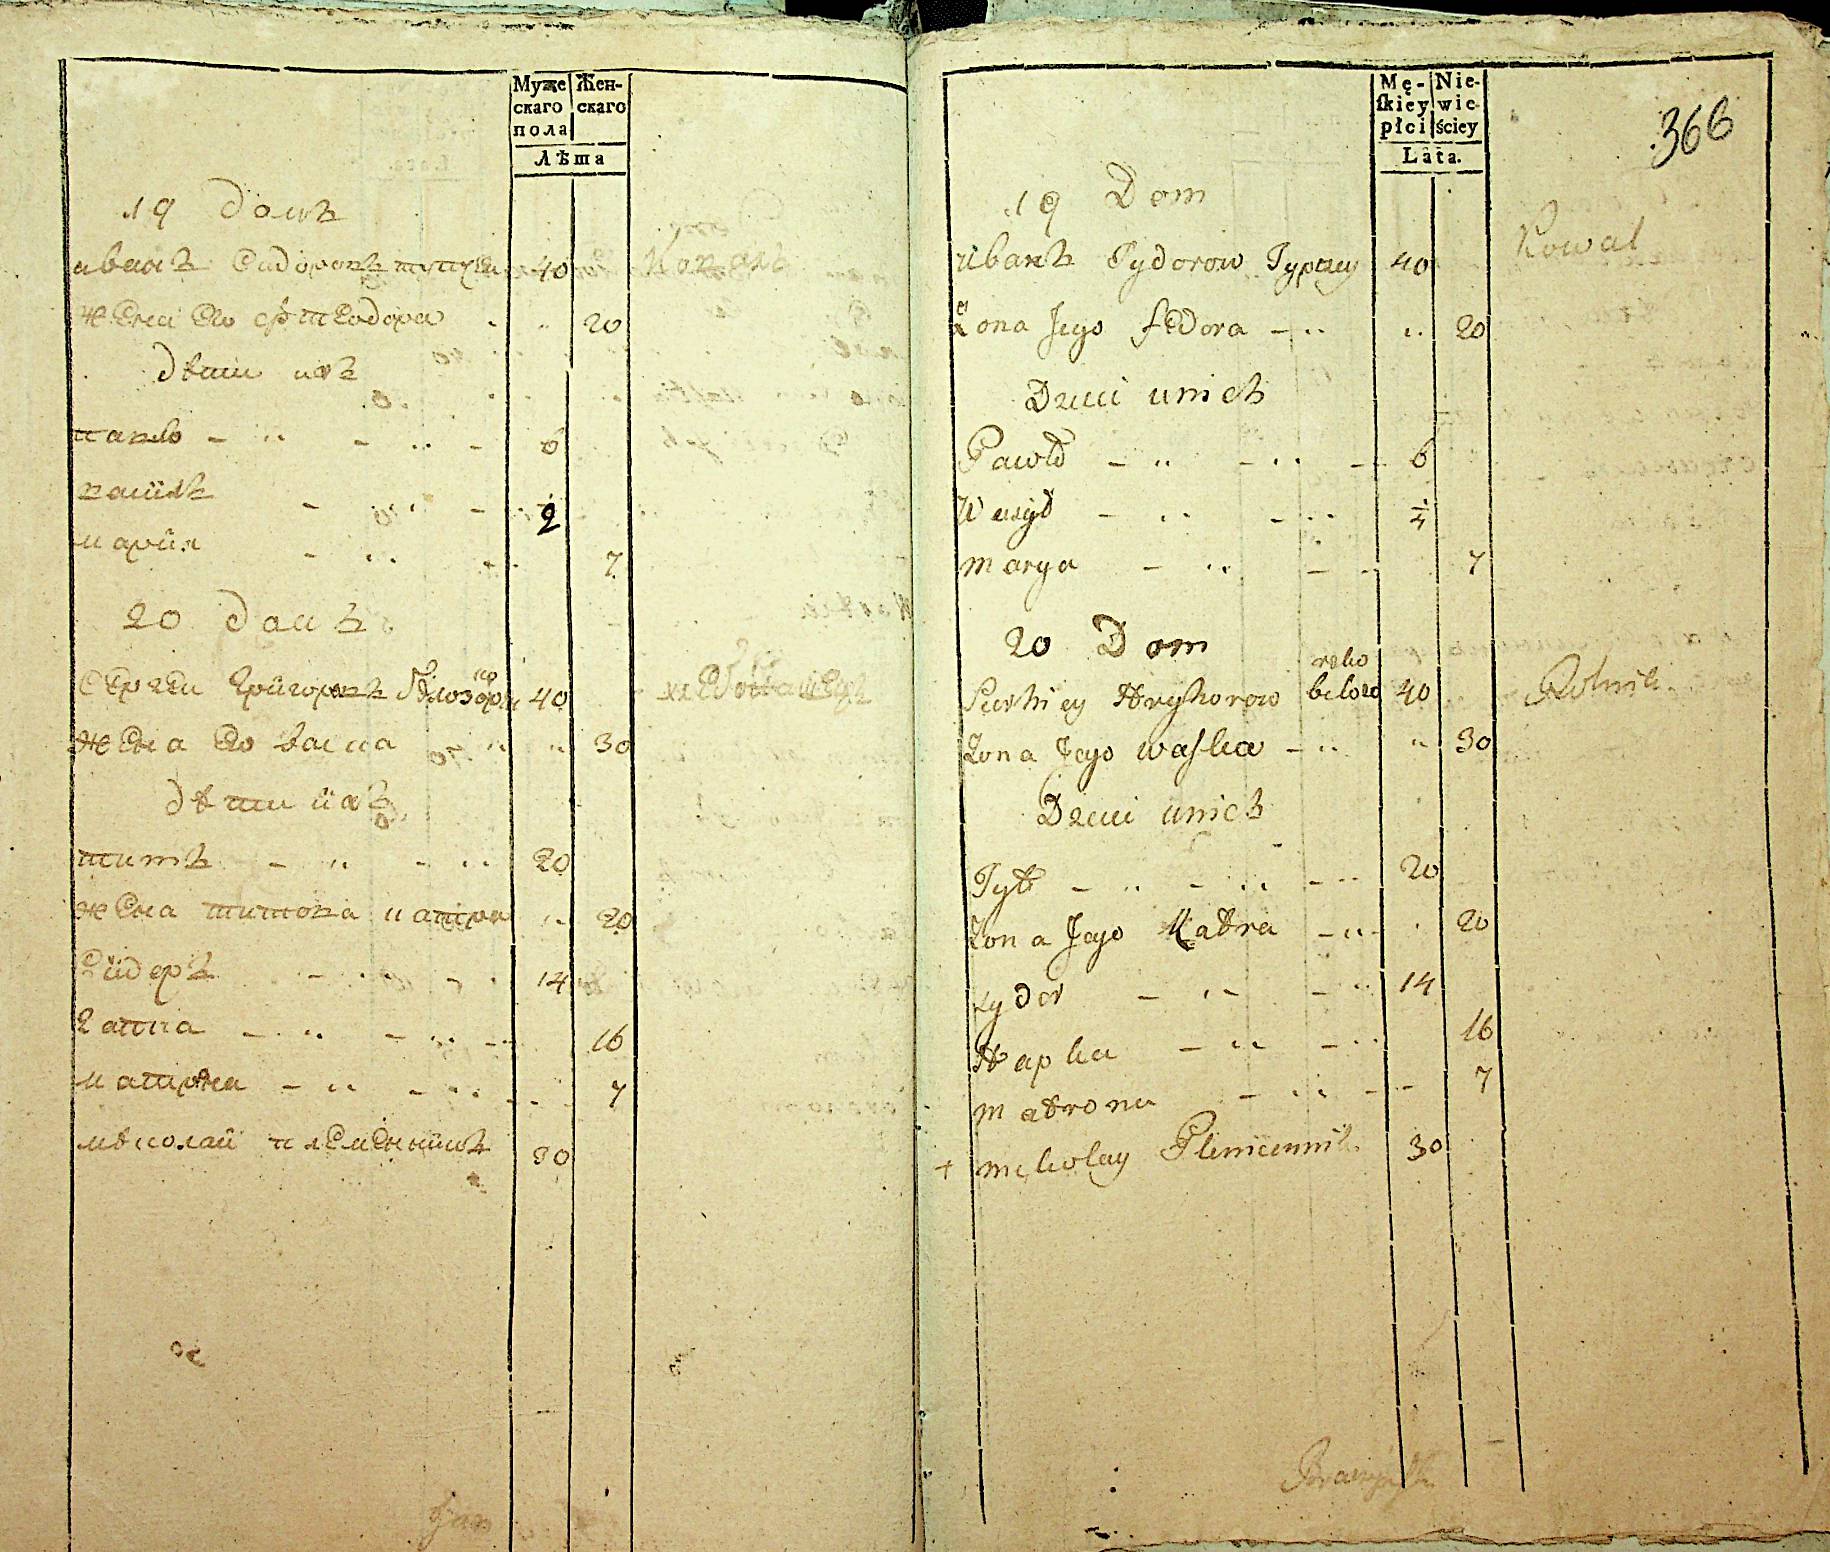 Муже
скаго
пола
Жен-
скаго
Лѣта
19 домъ
иванъ Сидоровъ 40 Коваль
жена его Феодора 20
дѣти ихъ
павло 6
василь 2
мария 7
20 домъ
Сергеи григоровъ 40 хлебопашецъ
жена его васка 30
дѣти ихъ
титъ 20
жена титова 20
Сидоръ 14
гапка 16
матрона 7
николай племенникъ 30
Mę-
ſkiey
płci
Nie-
wie-
ściey
Lata.
366
19 Dom
Sydorow 40 Kowal
Zona Jego Fedora 20
Dzieci unich
Pawło 6
Wasyl
Marya 7
20 Dom
Serhiey Hryhorow 40 Rolnik
Zona Jego Waſka 30
Dzieci unich
Tyt 20
Zona Jego 20
Sydor 14
Hapka 16
Matrona 7
+ Mikolay Plemiennik 30